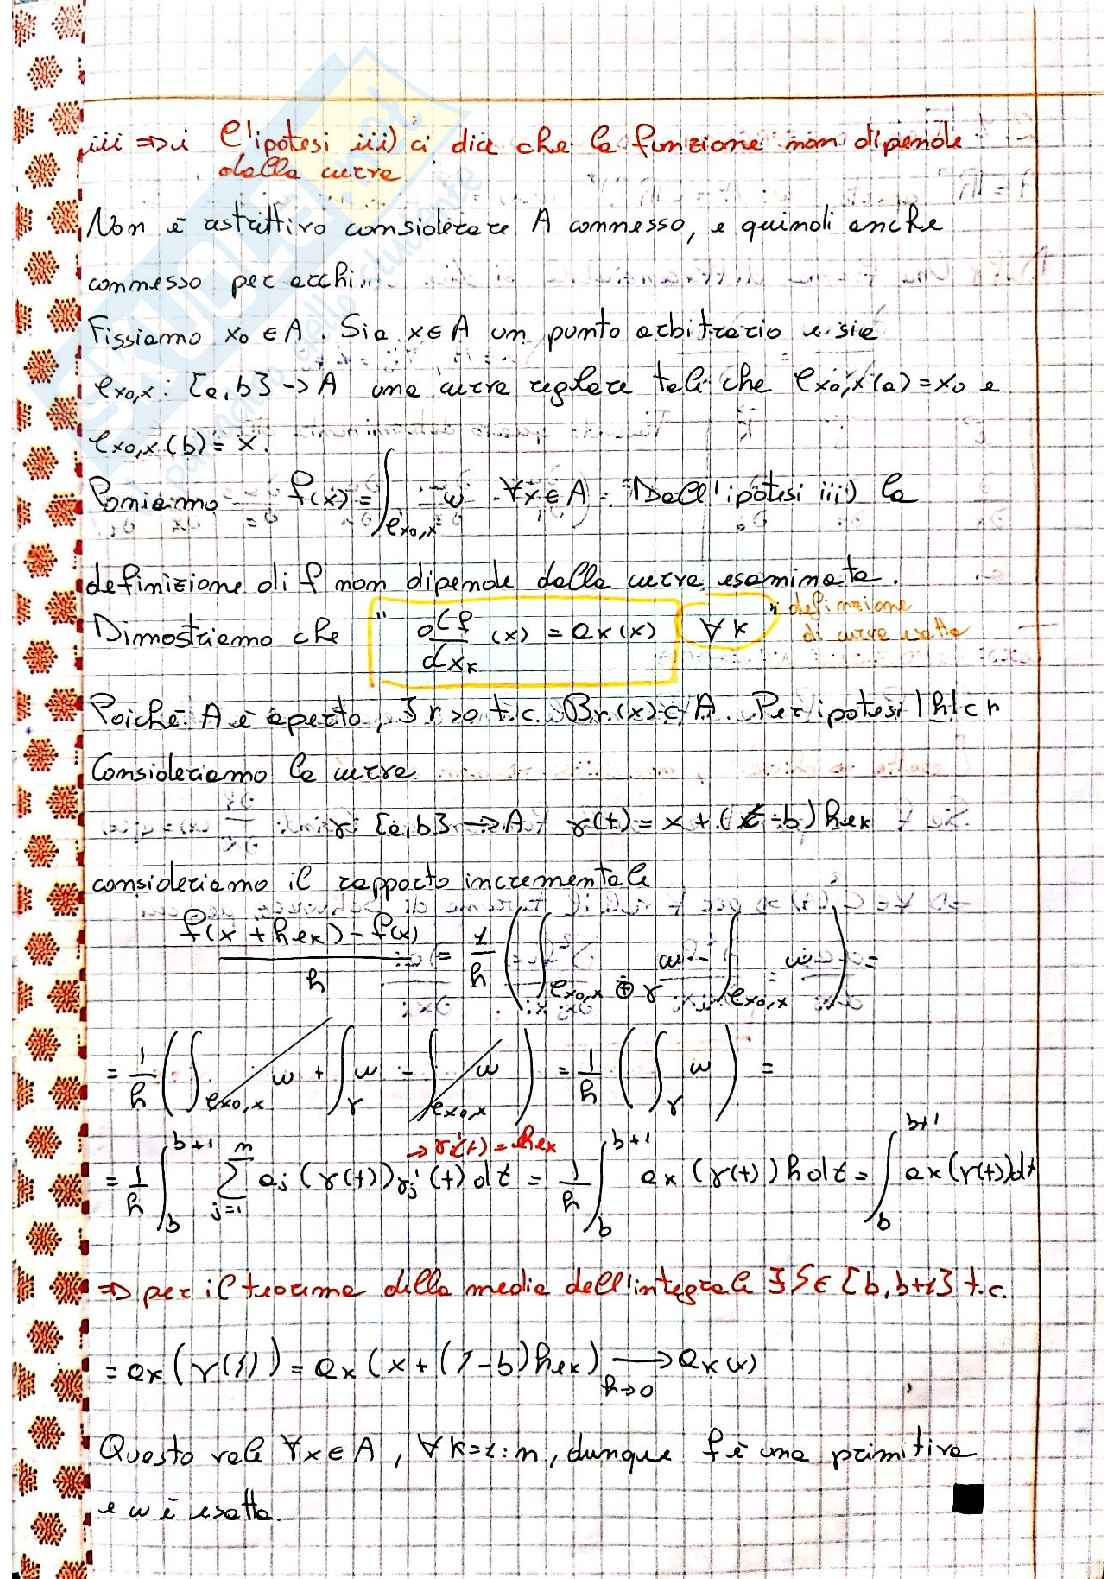 iii ⇒ i L'ipotesi iii) ci dice che la funzione non dipende
dalla curva
Non è astrittivo considerare A connesso, e quindi anche
connesso per archi.
Fissiamo x₀ ∈ A. Sia x ∈ A un punto arbitrario e sia
φx₀,x : [a,b] → A una curva regolare tale che φx₀,x(a) = x₀ e
φx₀,x(b) = x.
Poniamo f(x) = ∫φx₀,x ω ∀x ∈ A. Dall'ipotesi iii) la
definizione di f non dipende dalla curva esaminata.
Dimostriamo che " df/dxₖ (x) = aₖ(x) ∀ k "
definizione
di curva esatta
Poiché A è aperto, ∃ r>0 t.c. Br(x) ⊂ A. Per ipotesi |h| < r
Consideriamo la curva
γ: [a,b] → A γ(t) = x + (t-b)heₖ
consideriamo il rapporto incrementale
f(x + heₖ) - f(x) / h = 1/h ( ∫φx₀,x ⊕ γ ω - ∫φx₀,x ω ) =
= 1/h ( ∫φx₀,x ω + ∫γ ω - ∫φx₀,x ω ) = 1/h ( ∫γ ω ) =
→ γ'(t) = heₖ
= 1/h ∫_b^{b+1} Σ_{j=1}^{n} aⱼ(γ(t)) γⱼ'(t) dt = 1/h ∫_b^{b+1} aₖ(γ(t)) h dt = ∫_b^{b+1} aₖ(γ(t)) dt
⇒ per il teorema della media dell'integrale ∃ ζ ∈ [b, b+1] t.c.
= aₖ(γ(ζ)) = aₖ(x + (ζ-b)heₖ) ⟶_{h→0} aₖ(x)
Questo vale ∀x ∈ A, ∀ k=1:n, dunque f è una primitiva
e ω è esatta.